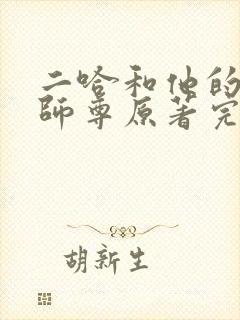 二哈和他的
師尊原著完
胡新生